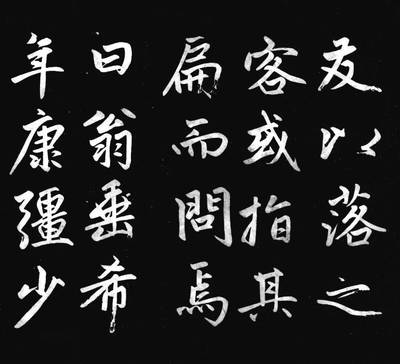 友以落之
客或指其
扁而問焉
曰翁垂希
年康彊少